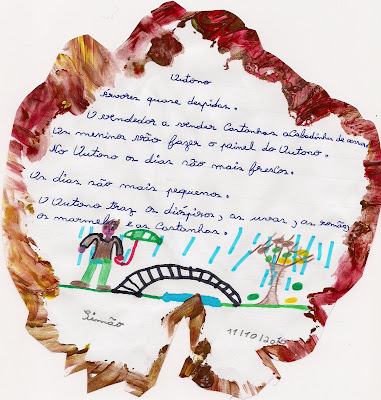 Outono
Árvores quase despidas.
O vendedor a vender Castanhas acabadinhas de assar
Os meninos vão fazer o painel do Outono.
No Outono os dias são mais frescos.
Os dias são mais pequenos.
O Outono traz os dióspiros, as uvas, as romãs,
os marmelos e as Castanhas.
Simão
11/10/2010